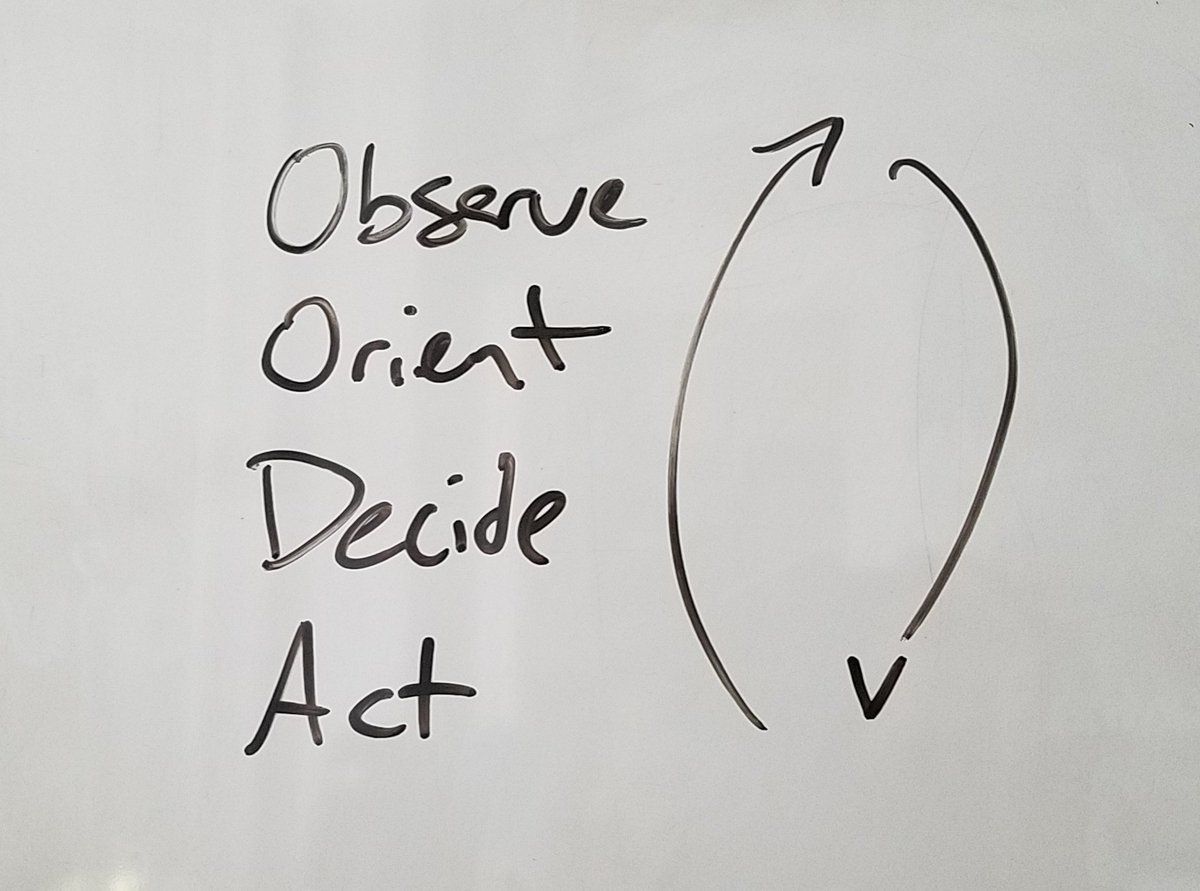 Observe
Orient
Decide
Act